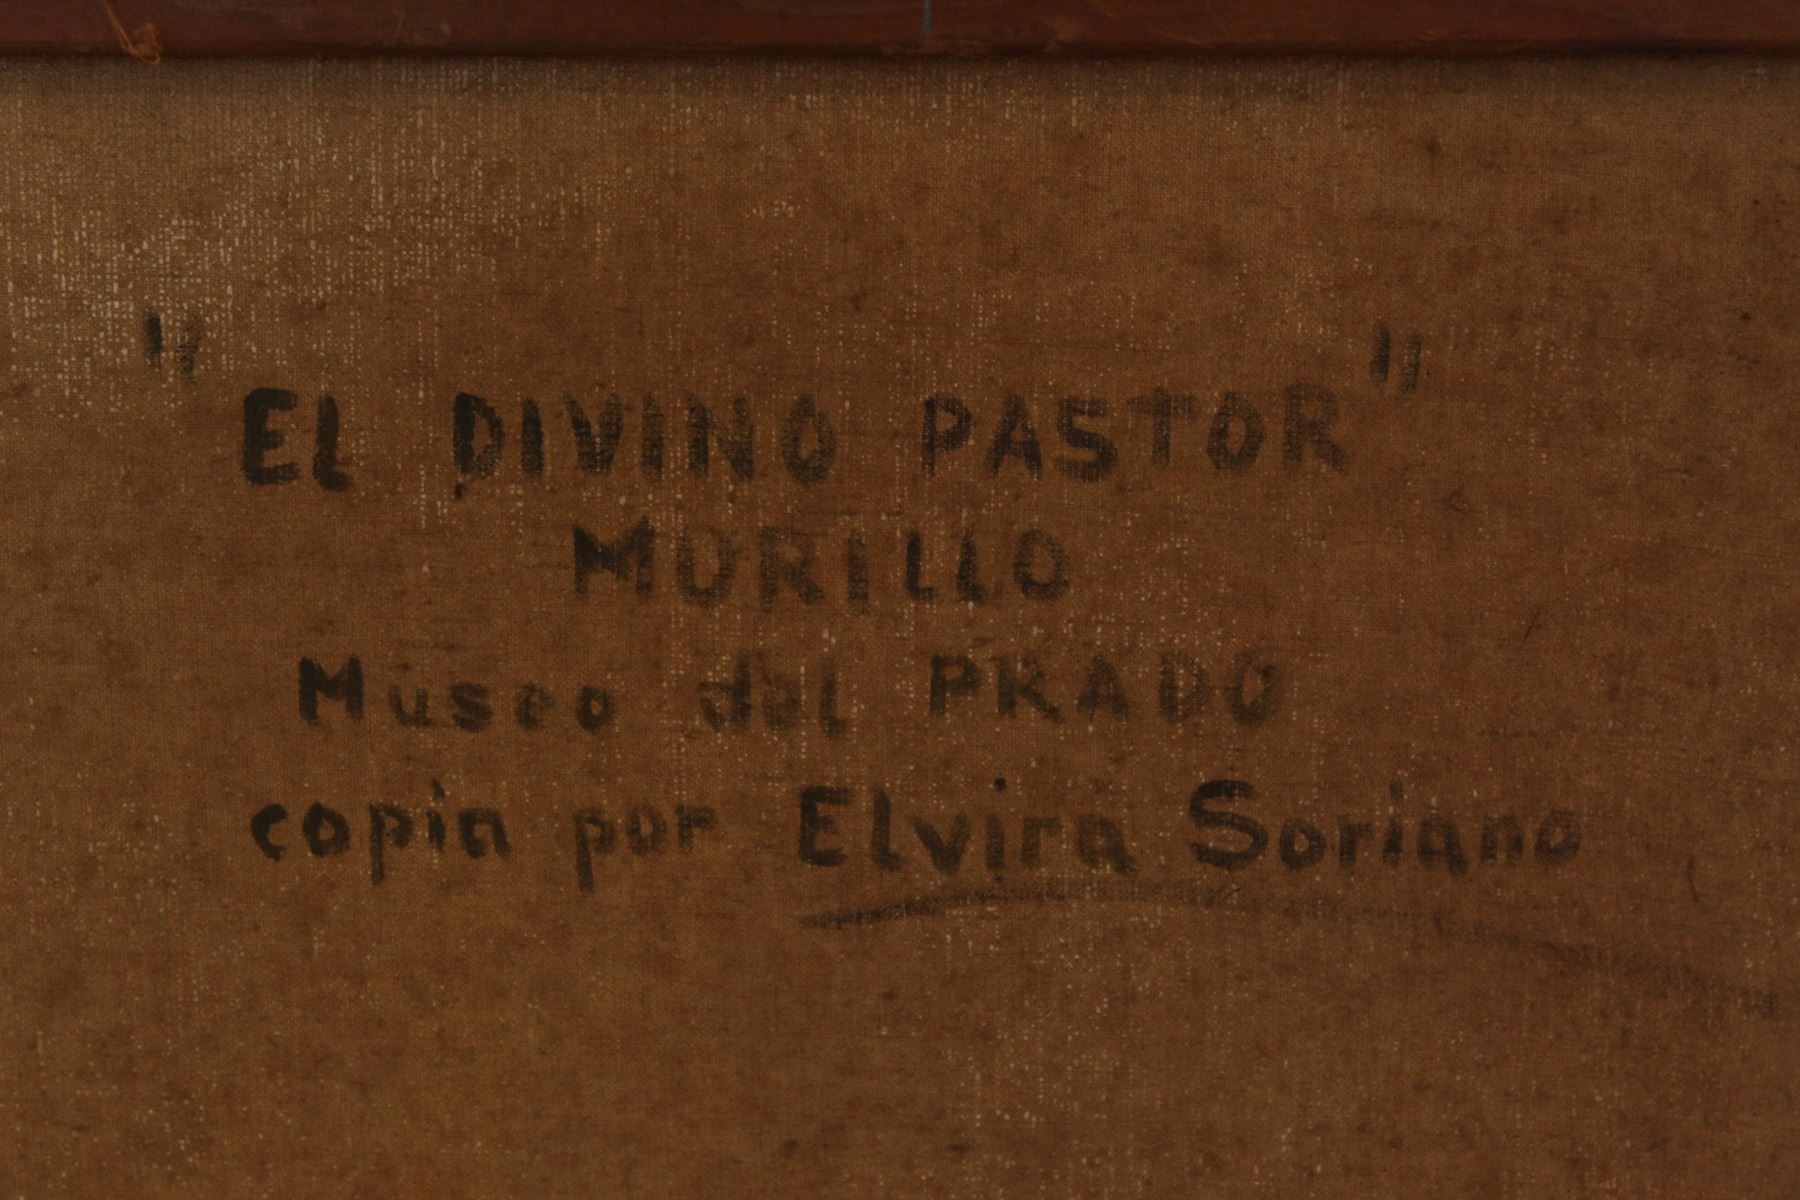 "EL DIVINO PASTOR"
MURILLO
Museo del PRADO
copia por Elvira Soriano